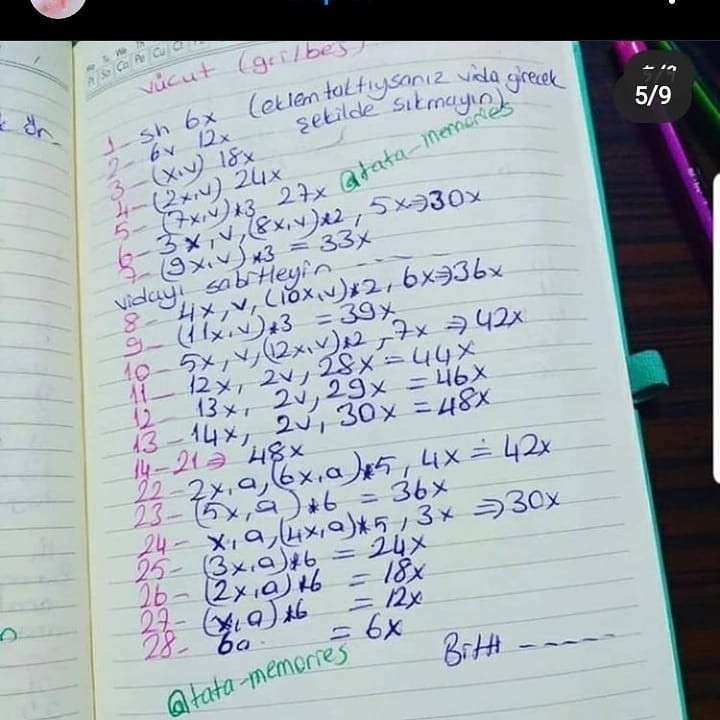 5/9
vücut (gri/bej)
1- sh 6x (eklem taktıysanız vida girecek şekilde sıkmayın)
2- 6v 12x
3- (x,v) 18x
4- (2x,v) 24x
5- (7x,v)*3 27x @tata-memories
6- 3x,v,(8x,v)*2, 5x⇒30x
7- (9x,v)*3 = 33x
vidayı sabitleyin - - - -
8- 4x,v,(10x,v)*2, 6x⇒36x
9- (11x,v)*3 = 39x
10- 5x,v,(12x,v)*2, 7x ⇒ 42x
11- 12x, 2v, 28x = 44x
12 13x, 2v, 29x = 46x
13- 14x, 2v, 30x = 48x
14-21⇒ 48x
22- 2x,a,(6x,a)*5, 4x = 42x
23- (5x,a)*6 = 36x
24- x,a,(4x,a)*5, 3x ⇒30x
25- (3x,a)*6 = 24x
26- (2x,a)*6 = 18x
27- (x,a)*6 = 12x
28- 6a = 6x
Bitti - - - - -
@tata-memories